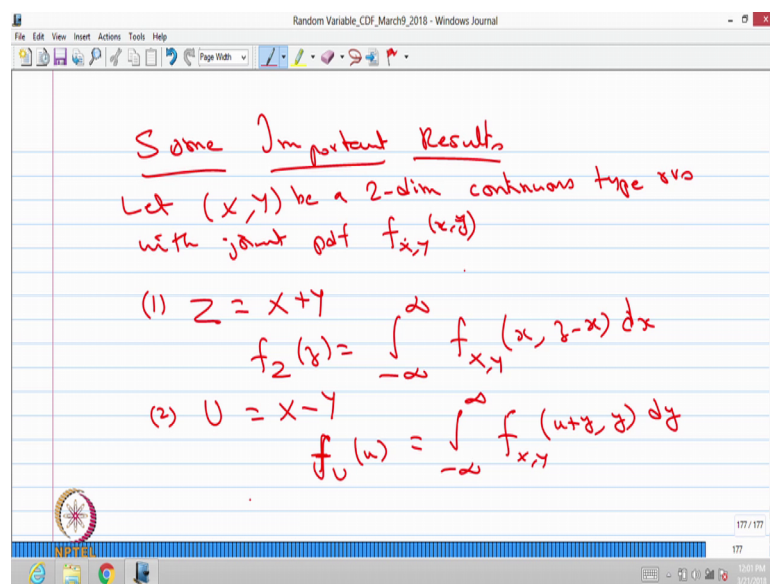 Random Variable_CDF_March9_2018 - Windows Journal
File Edit View Insert Actions Tools Help
Page Width
Some Important Results
Let (X,Y) be a 2-dim continuous type rvs
with joint pdf f_{X,Y}(x,y)
(1) Z = X+Y
f_Z(z) = ∫_{-∞}^{∞} f_{X,Y}(x, z-x) dx
(2) U = X-Y
f_U(u) = ∫_{-∞}^{∞} f_{X,Y}(u+y, y) dy
177 / 177
NPTEL
177
12:01 PM
3/21/2018